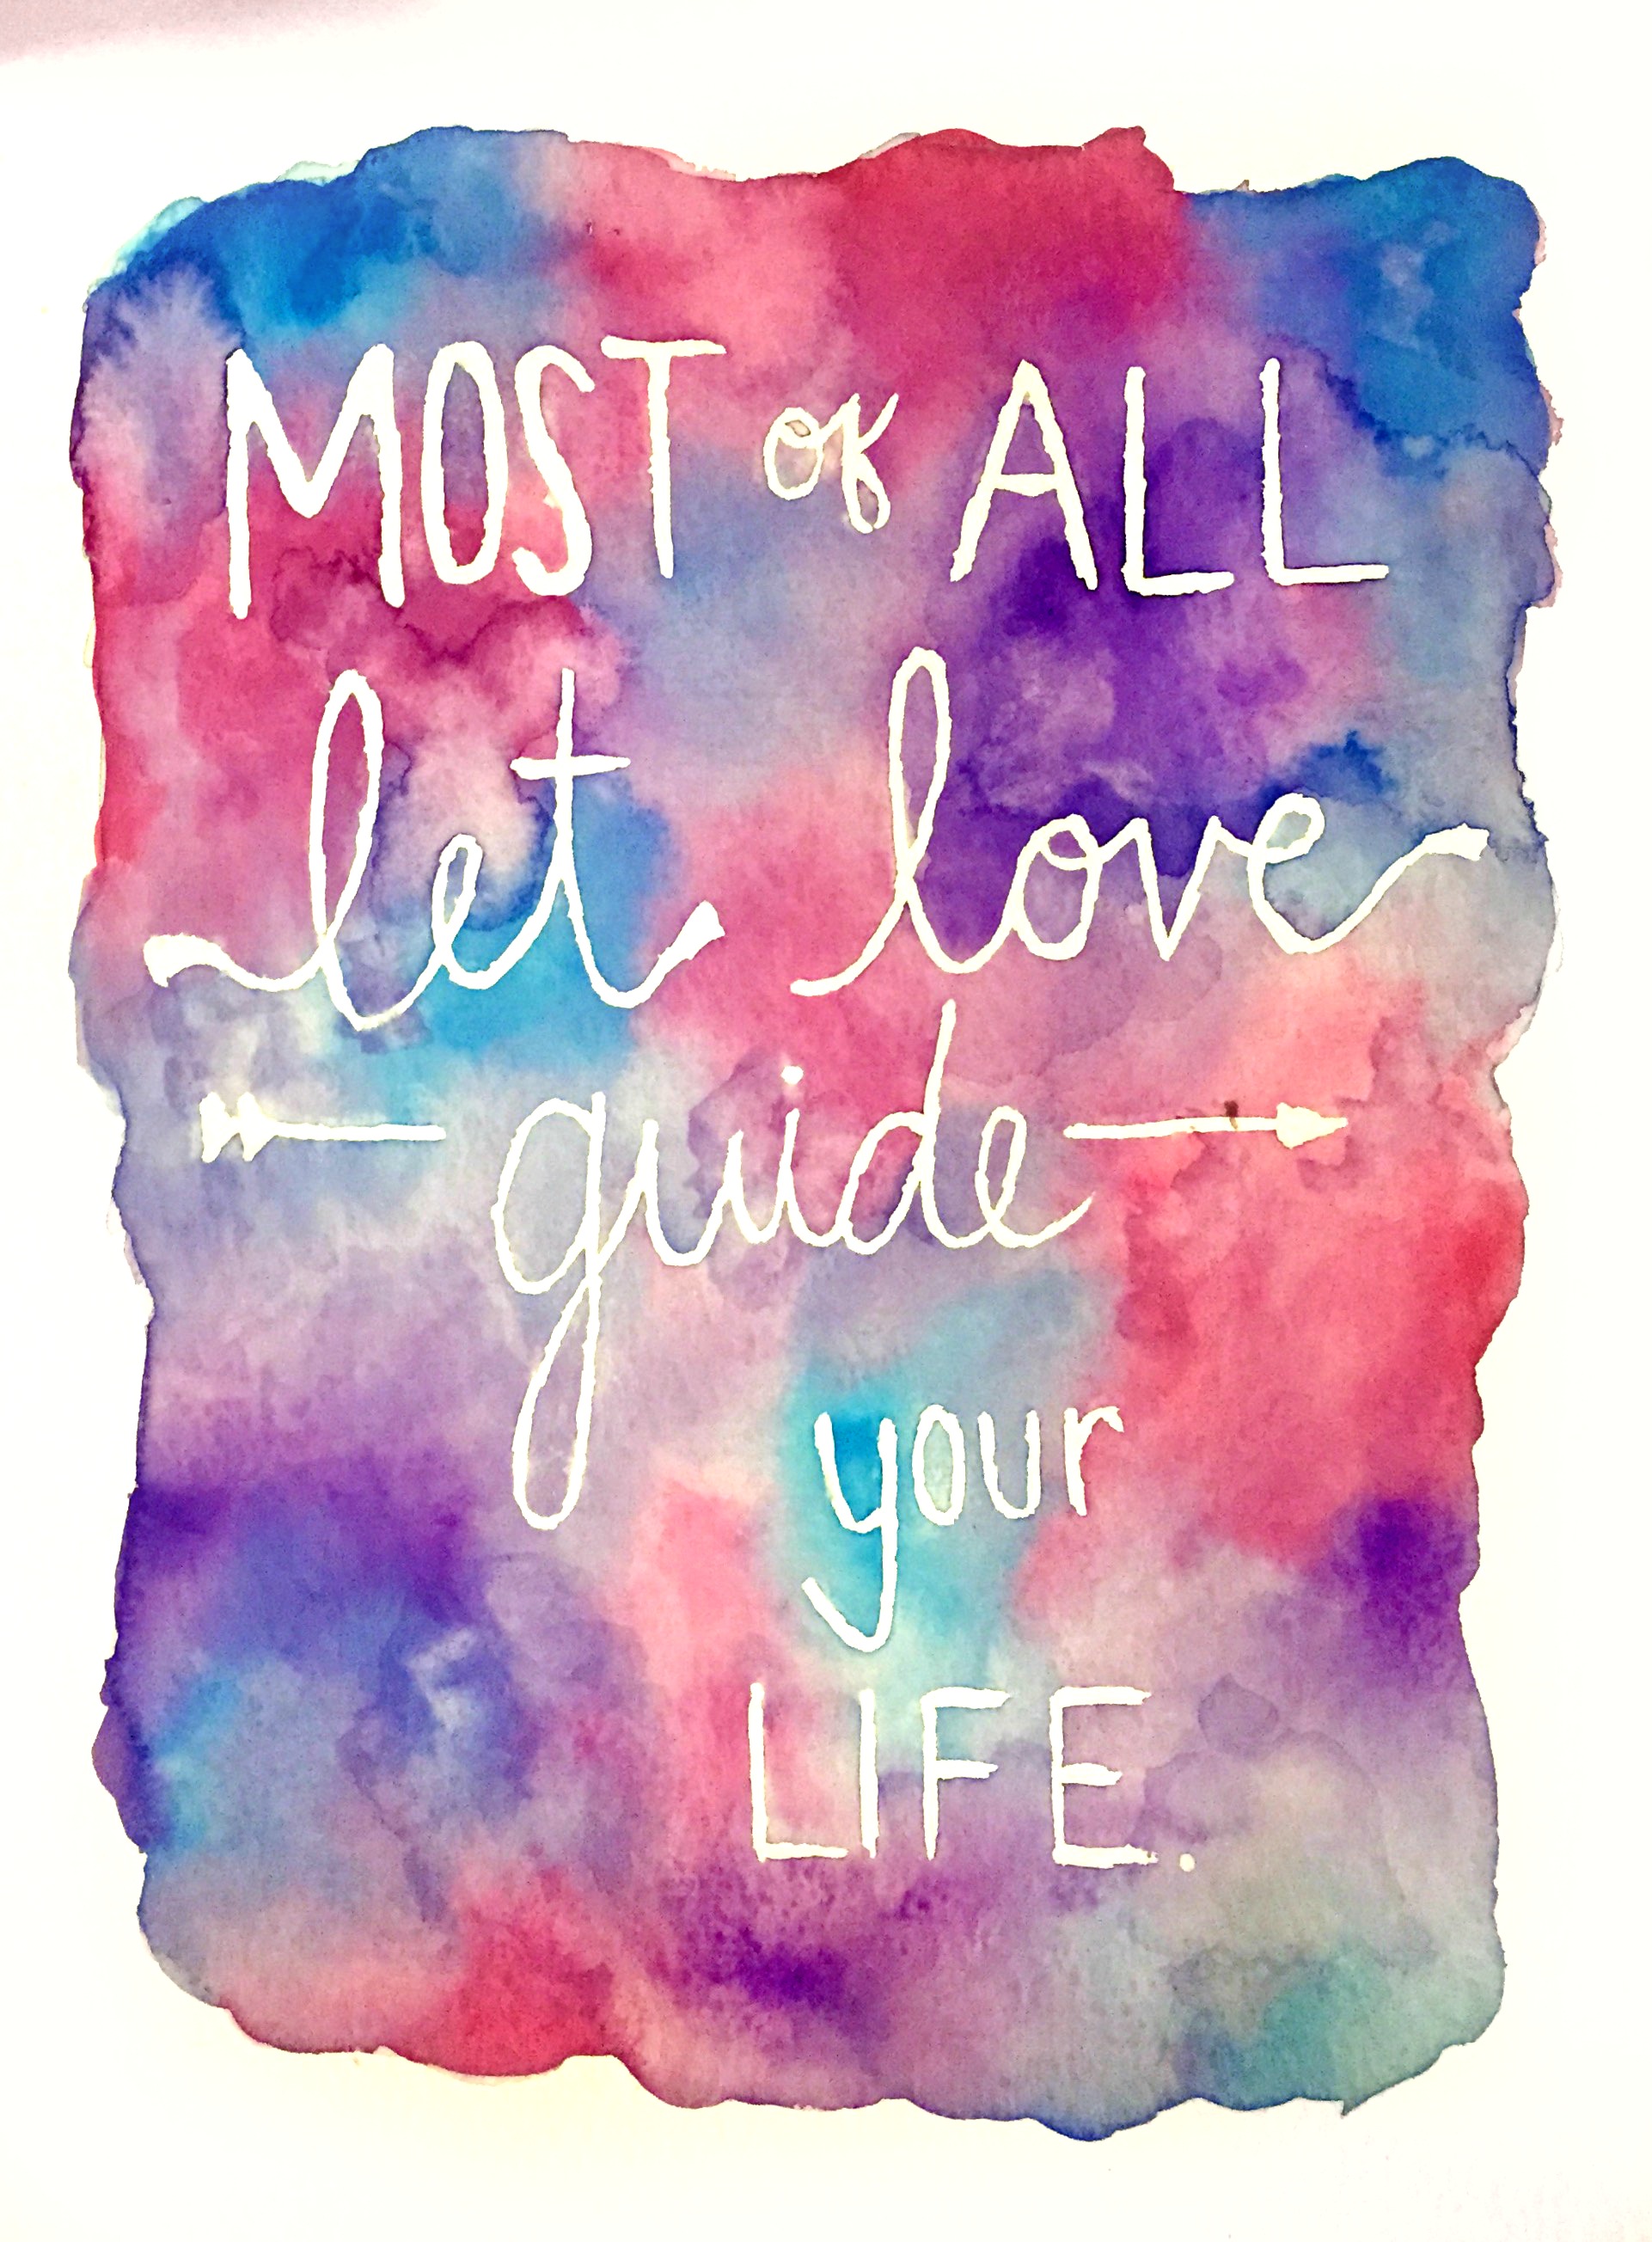 MOST of ALL
let love
guide
your
LIFE.